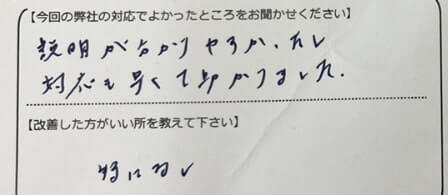 【今回の弊社の対応でよかったところをお聞かせください】
説明が分かりやすかったし
対応も早くて助かりました.
【改善した方がいい所を教えて下さい】
特になし